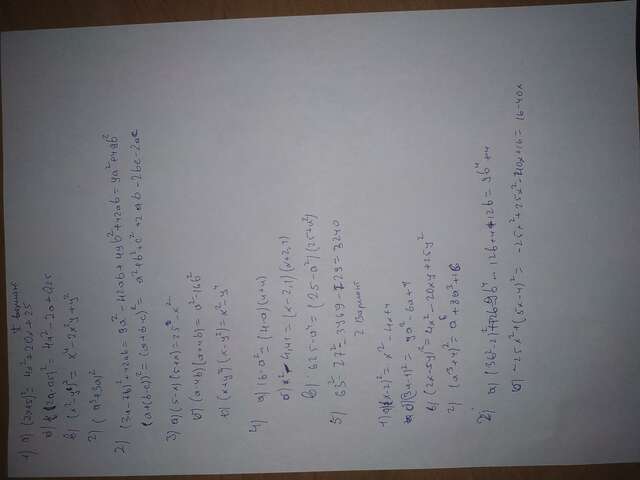 1 вариант
1) а) (2x+5)² = 4x²+20x+25
= 4a²-2a+0,25
в) (x²-y²)² = x⁴-2x²y²+y⁴
г) (a²+3a)²
2) (3a-7b)²+42ab = 9a²-42ab+49b²+42ab = 9a²+49b²
(a+(b-c))² = (a+b-c)² = a²+b²+c²+2ab-2bc-2ac
3) а) (5-x)(5+x) = 25-x²
б) (a-4b)(a+4b) = a²-16b²
4) а) 16-a² = (4-a)(4+a)
б) x²-4,41 = (x-2,1)(x+2,1)
в) 625-a⁴ = (25-a²)(25+a²)
5) 63²-27² = 3969-729 = 3240
2 Вариант
1) (x-2)² = x²-4x+4
(3a-1)² = 9a²-6a+1
в) (2x-5y)² = 4x²-20xy+25y²
г) (a³+4)² = a⁶+8a³+16
2) а) (3b²-2)²+12b² = 9b⁴-12b²+4+12b² = 9b⁴+4
б) -25x²+(5x-4)² = -25x²+25x²-40x+16 = 16-40x